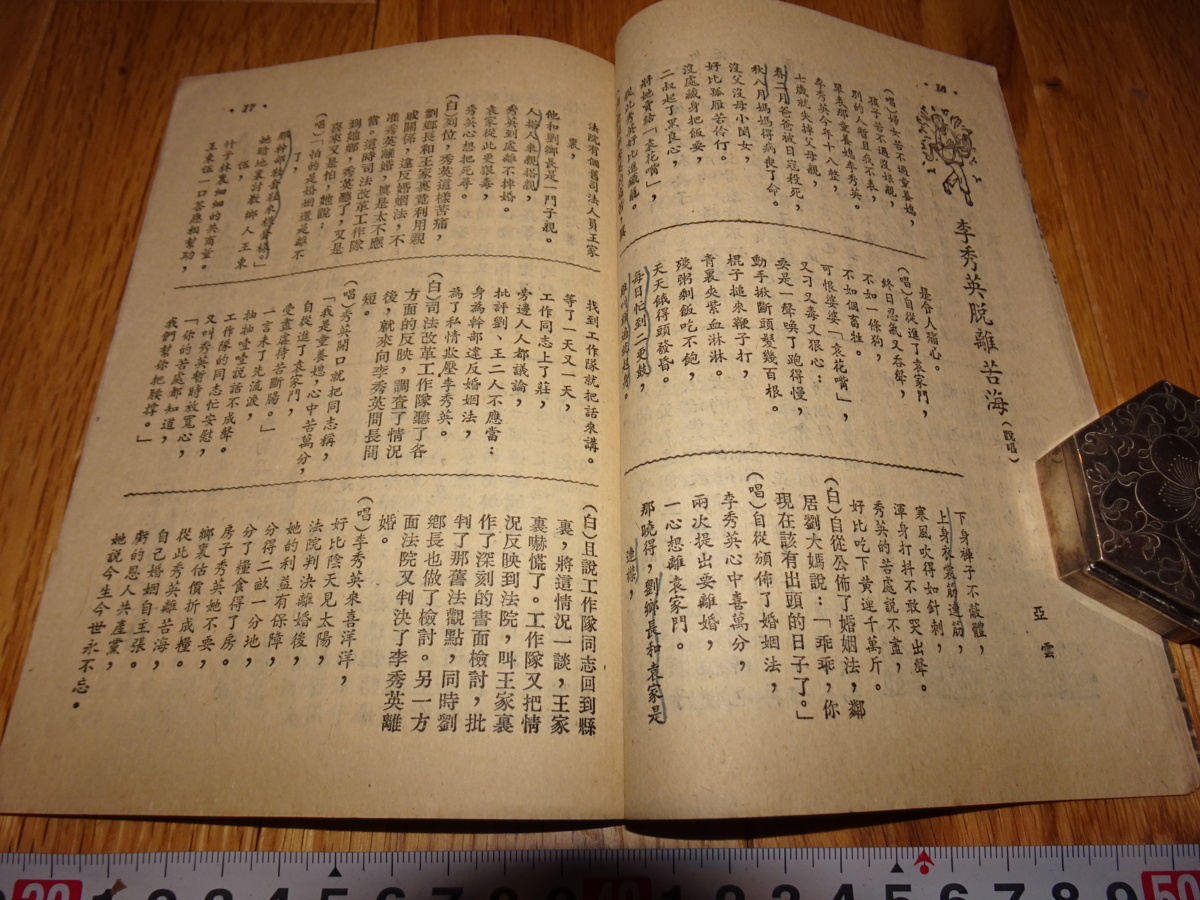 16
李秀英脫離苦海（說唱）
亞雲
（唱）婦女苦不過童養媳，
孩子苦不過沒娘親，
別的人暫且我不表，
單表那童養媳李秀英。
李秀英今年十八整，
七歲就失掉父母親，
春二月爸爸被日寇殺死，
秋八月媽媽得病喪了命。
沒父沒母小閨女，
好比孤雁苦伶仃。
沒處藏身把飯要，
二叔起了黑良心，
將她賣給「袁花嘴」，
是令人痛心。
（唱）自從進了袁家門，
終日忍氣又吞聲，
不如一條狗，
不如個畜牲。
可恨婆婆「袁花嘴」，
又刁又毒又狠心：
要是一聲喚了跑得慢，
動手掀斷頭髮幾百根。
棍子搥來鞭子打，
青裏夾紫血淋淋。
殘粥剩飯吃不飽，
天天餓得頭發昏。
每日忙到二更鼓，
下身褲子不蔽體，
上身衣裳筋連筋，
寒風吹得如針刺，
渾身打抖不敢哭出聲。
秀英的苦處說不盡，
好比吃下黃連千萬斤。
（白）自從公佈了婚姻法，鄰
居劉大媽說：「乖乖，你
現在該有出頭的日子了。」
（唱）自從頒佈了婚姻法，
李秀英心中喜萬分，
兩次提出要離婚，
一心想離袁家門。
那曉得，劉鄉長和袁家是
連襟，
17
法院有個舊司法人員王家
裏，
他和劉鄉長是一門子親。
人搭人來親搭親，
秀英到處離不掉婚。
袁家從此更狠毒，
秀英心想把死尋。
（白）列位，秀英這樣苦痛，
劉鄉長和王家裏竟利用親
戚關係，違反婚姻法，不
准秀英離婚，眞是太不應
當。這時司法改革工作隊
到她鄉，秀英聽了，又是
喜來又是怕，她說：
（唱）「怕的是婚姻還是離不
了，
她暗地裏討教鄉人王東
伍，
竹子林裏細細的共商量。
王東伍一口答應相幫助，
找到工作隊就把話來講。
等了一天又一天，
工作同志上了莊，
旁邊人人都議論，
批評劉、王二人不應當：
身為幹部違反婚姻法，
為了私情欺壓李秀英。
（白）司法改革工作隊聽了各
方面的反映，調查了情況
後，就來向李秀英問長問
短。
（唱）秀英開口就把同志稱，
「我是童養媳，心中苦萬分，
自從進了袁家門，
受盡虐待苦斷腸。」
一言未了先流淚，
抽抽噎噎說話不成聲。
工作隊的同志忙安慰，
又叫秀英暫時放寬心，
「你的苦處都知道，
我們幫你把腰撐。」
（白）且說工作隊同志回到縣
裏，將這情況一談，王家
裏嚇慌了。工作隊又把情
況反映到法院，叫王家裏
作了深刻的書面檢討，批
判了那舊法觀點，同時劉
鄉長也做了檢討。另一方
面法院又判決了李秀英離
婚。
（唱）李秀英來喜洋洋，
好比陰天見太陽，
法院判決離婚後，
她的利益有保障，
分得二畝一分地，
分了糧食得了房。
房子秀英她不要，
鄉裏估價折成糧。
從此秀英離苦海，
自己婚姻自主張。
虧的恩人共產黨，
她說今生今世永不忘。
20
40
1 2 3 4 5 6 7 8 9
1 2 3 4 5 6 7 8 9
50